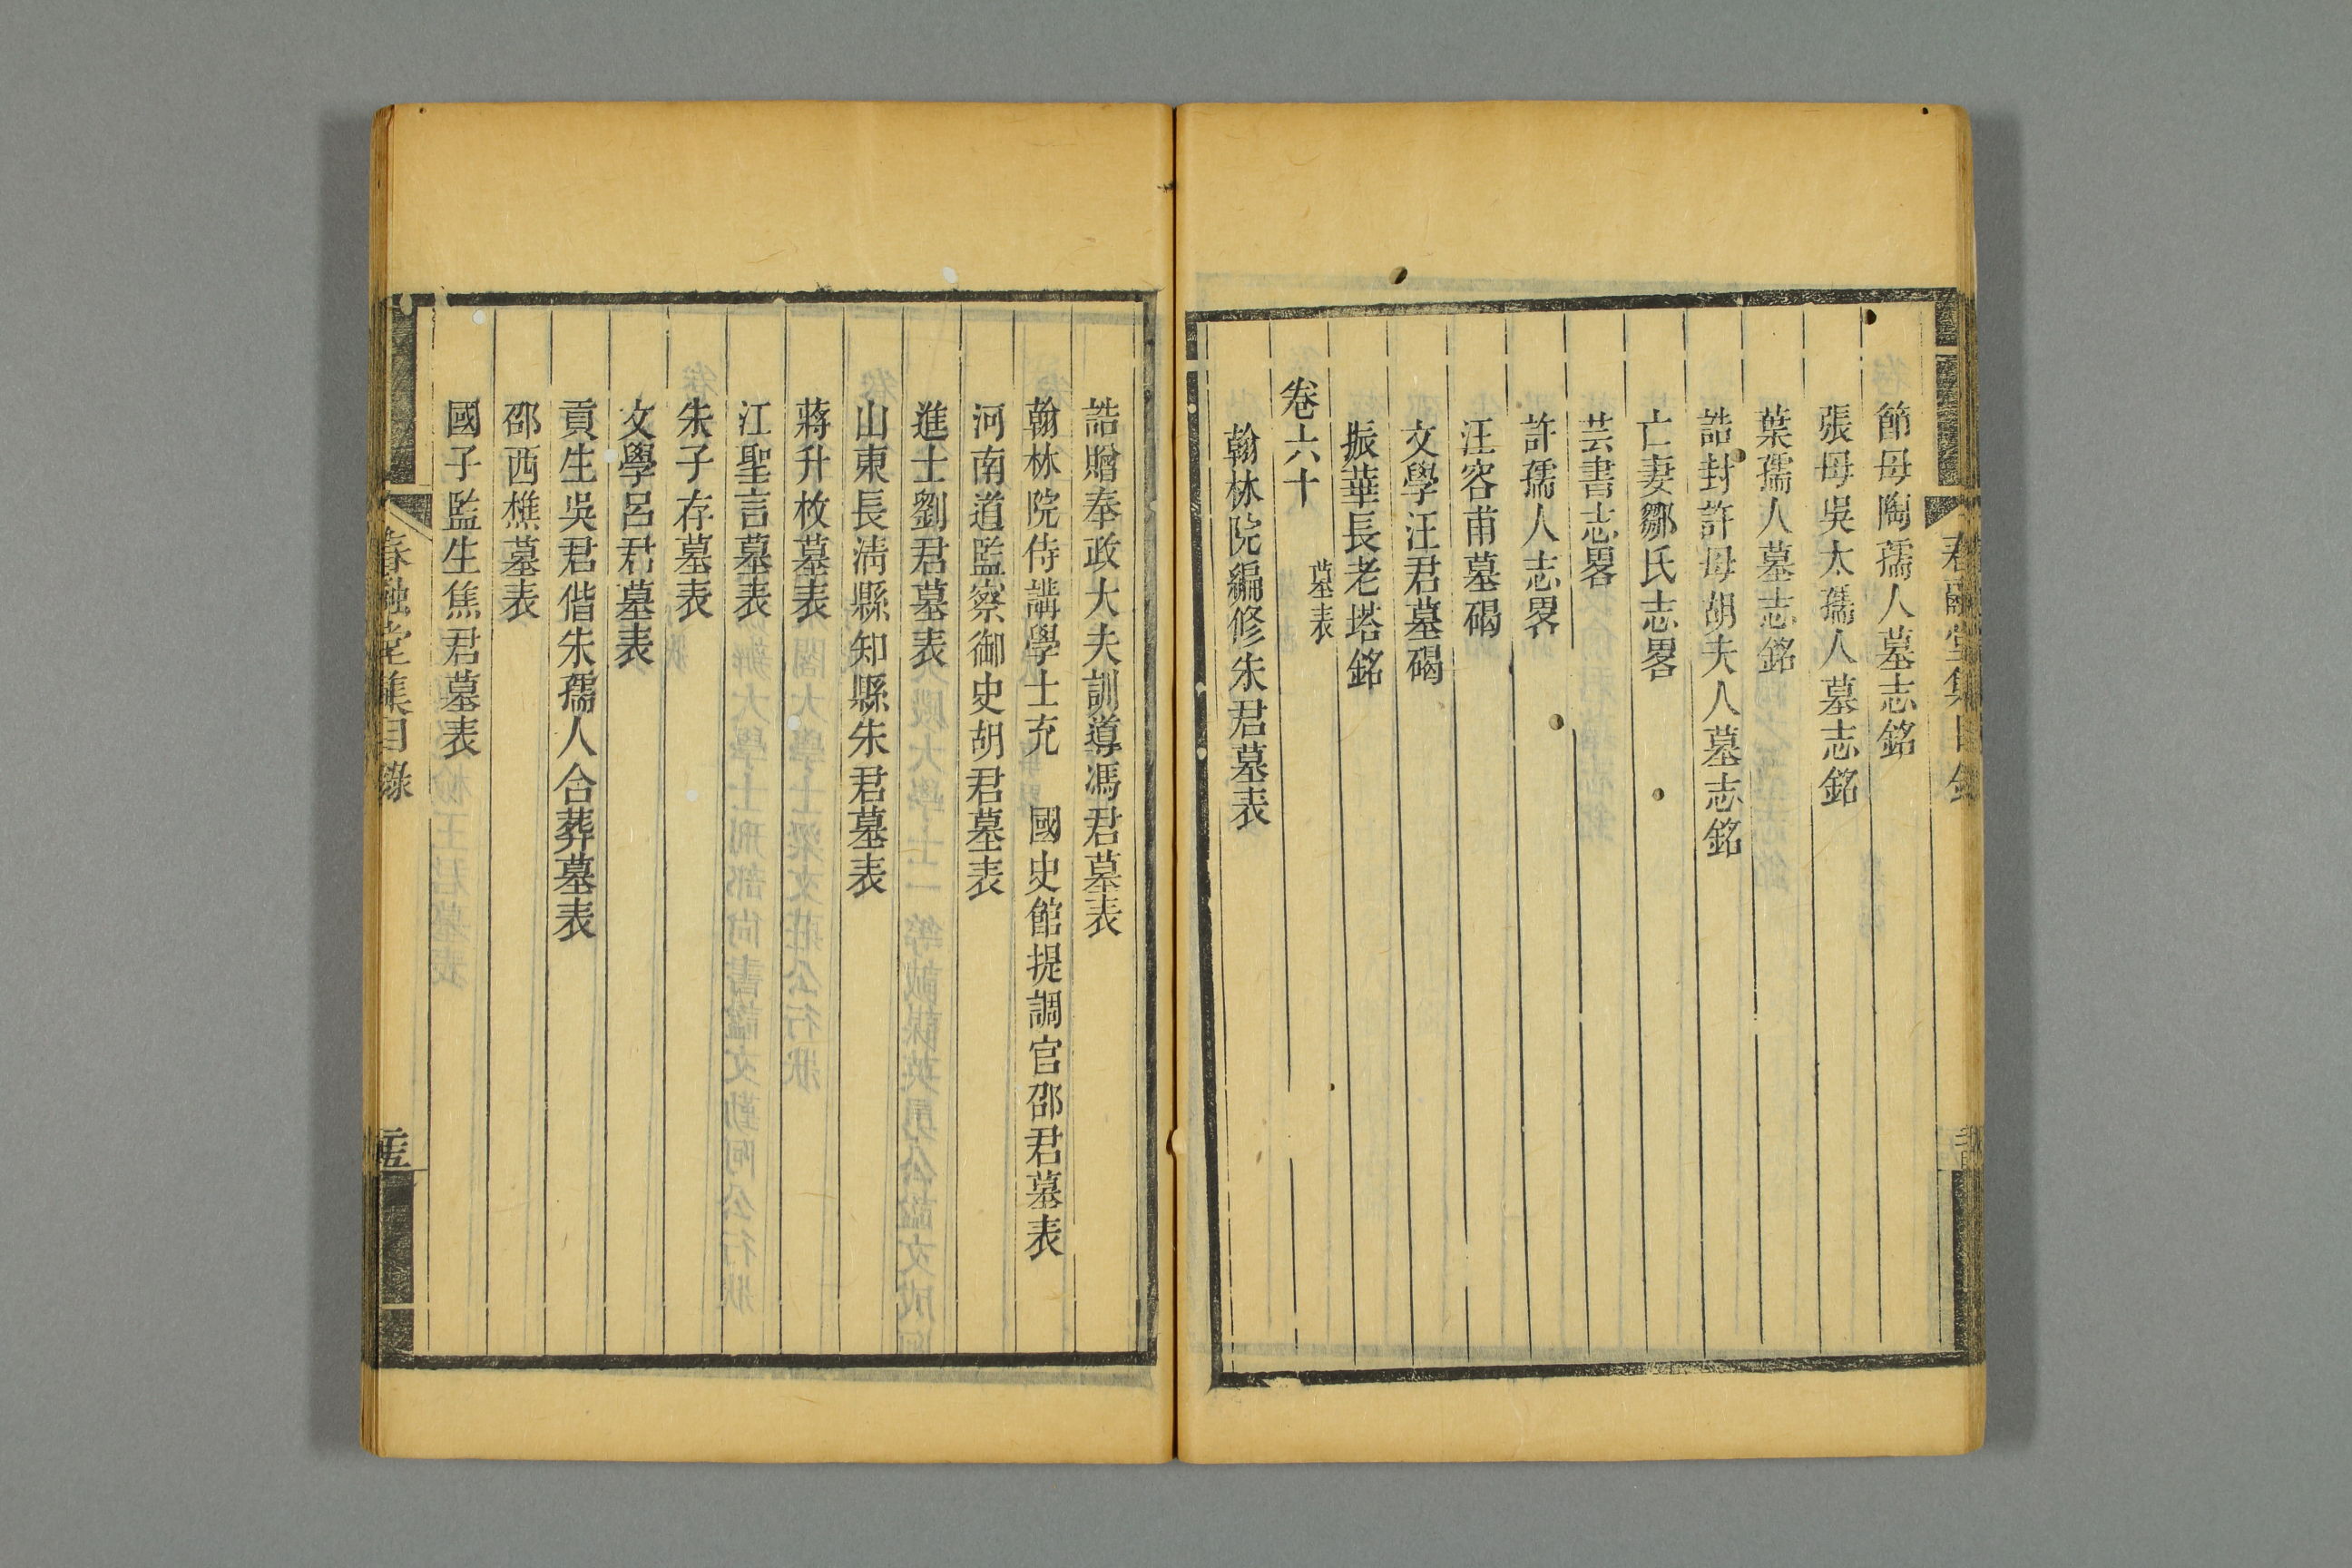 春融堂集目錄
節母陶孺人墓志銘
張母吳太孺人墓志銘
葉孺人墓志銘
誥封許母胡夫人墓志銘
亡妻鄒氏志畧
芸書志畧
許孺人志畧
汪容甫墓碣
文學汪君墓碣
振華長老塔銘
卷六十 墓表
翰林院編修朱君墓表
誥贈奉政大夫訓導馮君墓表
翰林院侍講學士充 國史館提調官邵君墓表
河南道監察御史胡君墓表
進士劉君墓表
山東長清縣知縣朱君墓表
蔣升枚墓表
江聖言墓表
朱子存墓表
文學呂君墓表
貢生吳君偕朱孺人合葬墓表
邵西樵墓表
國子監生焦君墓表
春融堂集目錄 二十五